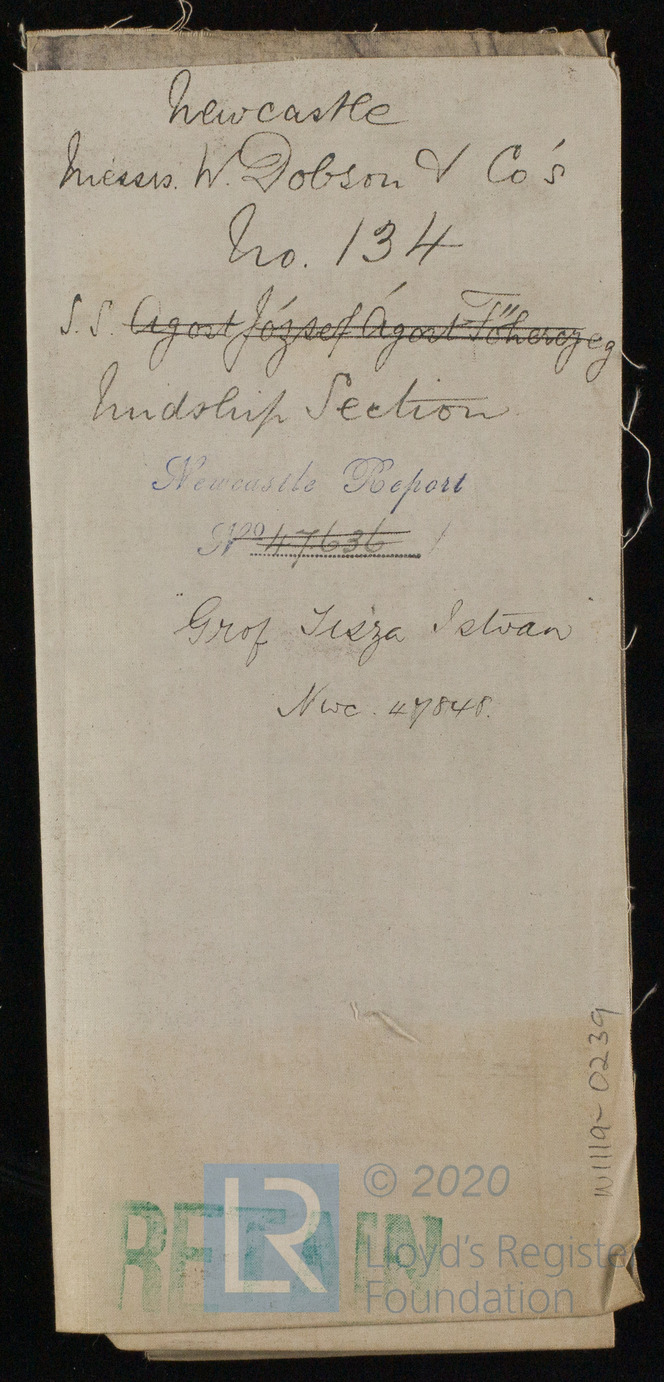 Newcastle
Messrs. W. Dobson & Co's
No. 134
S.S. Ágost József Ágost Főherczeg
Midship Section
Newcastle Report
No 47636
"Grof Tisza Istvan"
Nwc. 47848.
W1119-0239
RETAIN
LR
© 2020
Lloyd's Registe
Foundation